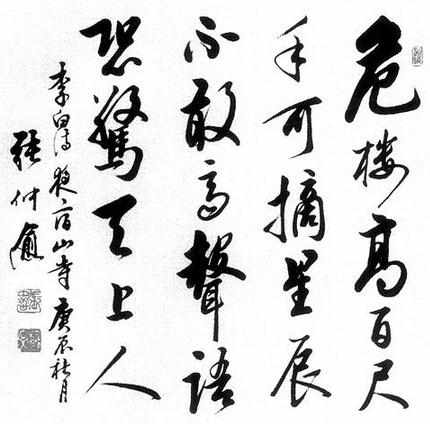 危楼高百尺
手可摘星辰
不敢高聲語
恐驚天上人
李白诗夜宿山寺 庚辰秋月
張仲愈